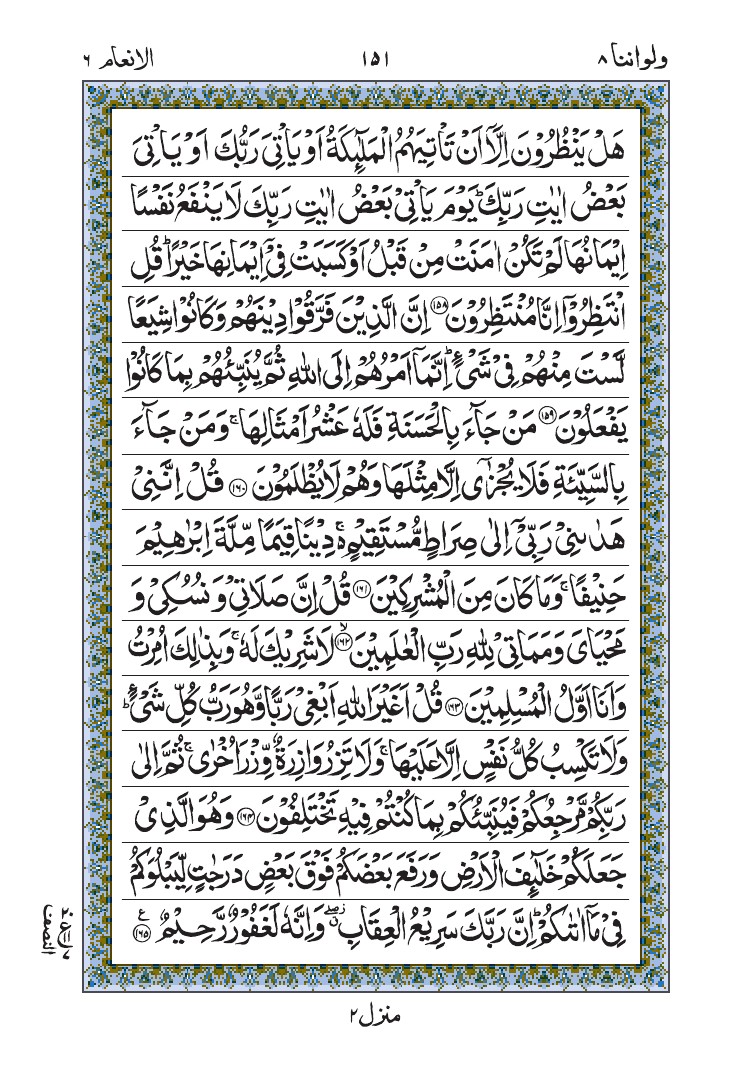 ولواننا ٨
١٥١
الانعام ٦
هَلۡ يَنۡظُرُوۡنَ اِلَّاۤ اَنۡ تَاۡتِيَهُمُ الۡمَلٰٓٮِٕكَةُ اَوۡ يَاۡتِىَ رَبُّكَ اَوۡ يَاۡتِىَ
بَعۡضُ اٰيٰتِ رَبِّكَ‌ؕ يَوۡمَ يَاۡتِىۡ بَعۡضُ اٰيٰتِ رَبِّكَ لَا يَنۡفَعُ نَفۡسًا
اِيۡمَانُهَا لَمۡ تَكُنۡ اٰمَنَتۡ مِنۡ قَبۡلُ اَوۡ كَسَبَتۡ فِىۡۤ اِيۡمَانِهَا خَيۡرًا‌ؕ قُلِ
انْتَظِرُوۡۤا اِنَّا مُنۡتَظِرُوۡنَ ﴿١٥٨﴾ اِنَّ الَّذِيۡنَ فَرَّقُوۡا دِيۡنَهُمۡ وَكَانُوۡا شِيَعًا
لَّسۡتَ مِنۡهُمۡ فِىۡ شَىۡءٍ‌ؕ اِنَّمَاۤ اَمۡرُهُمۡ اِلَى اللّٰهِ ثُمَّ يُنَبِّئُهُمۡ بِمَا كَانُوۡا
يَفۡعَلُوۡنَ ﴿١٥٩﴾ مَنۡ جَآءَ بِالۡحَسَنَةِ فَلَهٗ عَشۡرُ اَمۡثَالِهَا‌ۚ وَمَنۡ جَآءَ
بِالسَّيِّئَةِ فَلَا يُجۡزٰٓى اِلَّا مِثۡلَهَا وَهُمۡ لَا يُظۡلَمُوۡنَ ﴿١٦٠﴾ قُلۡ اِنَّنِىۡ
هَدٰٮنِىۡ رَبِّىۡۤ اِلٰى صِرَاطٍ مُّسۡتَقِيۡمٍۚ دِيۡنًا قِيَمًا مِّلَّةَ اِبۡرٰهِيۡمَ
حَنِيۡفًا‌ۚ وَمَا كَانَ مِنَ الۡمُشۡرِكِيۡنَ ﴿١٦١﴾ قُلۡ اِنَّ صَلَاتِىۡ وَنُسُكِىۡ وَ
مَحۡيَاىَ وَمَمَاتِىۡ لِلّٰهِ رَبِّ الۡعٰلَمِيۡنَۙ ﴿١٦٢﴾ لَا شَرِيۡكَ لَهٗ‌ۚ وَبِذٰلِكَ اُمِرۡتُ
وَاَنَا اَوَّلُ الۡمُسۡلِمِيۡنَ ﴿١٦٣﴾ قُلۡ اَغَيۡرَ اللّٰهِ اَبۡغِىۡ رَبًّا وَّهُوَ رَبُّ كُلِّ شَىۡءٍ‌ؕ
وَلَا تَكۡسِبُ كُلُّ نَفۡسٍ اِلَّا عَلَيۡهَا‌ۚ وَلَا تَزِرُ وَازِرَةٌ وِّزۡرَ اُخۡرٰى‌ۚ ثُمَّ اِلٰى
رَبِّكُمۡ مَّرۡجِعُكُمۡ فَيُنَبِّئُكُمۡ بِمَا كُنۡتُمۡ فِيۡهِ تَخۡتَلِفُوۡنَ ﴿١٦٤﴾ وَهُوَ الَّذِىۡ
جَعَلَكُمۡ خَلٰٓٮِٕفَ الۡاَرۡضِ وَرَفَعَ بَعۡضَكُمۡ فَوۡقَ بَعۡضٍ دَرَجٰتٍ لِّيَبۡلُوَكُمۡ
فِىۡ مَاۤ اٰتٰٮكُمۡ‌ؕ اِنَّ رَبَّكَ سَرِيۡعُ الۡعِقَابِ وَاِنَّهٗ لَغَفُوۡرٌ رَّحِيۡمٌ ﴿١٦٥﴾ ع
النصف
منزل ٢